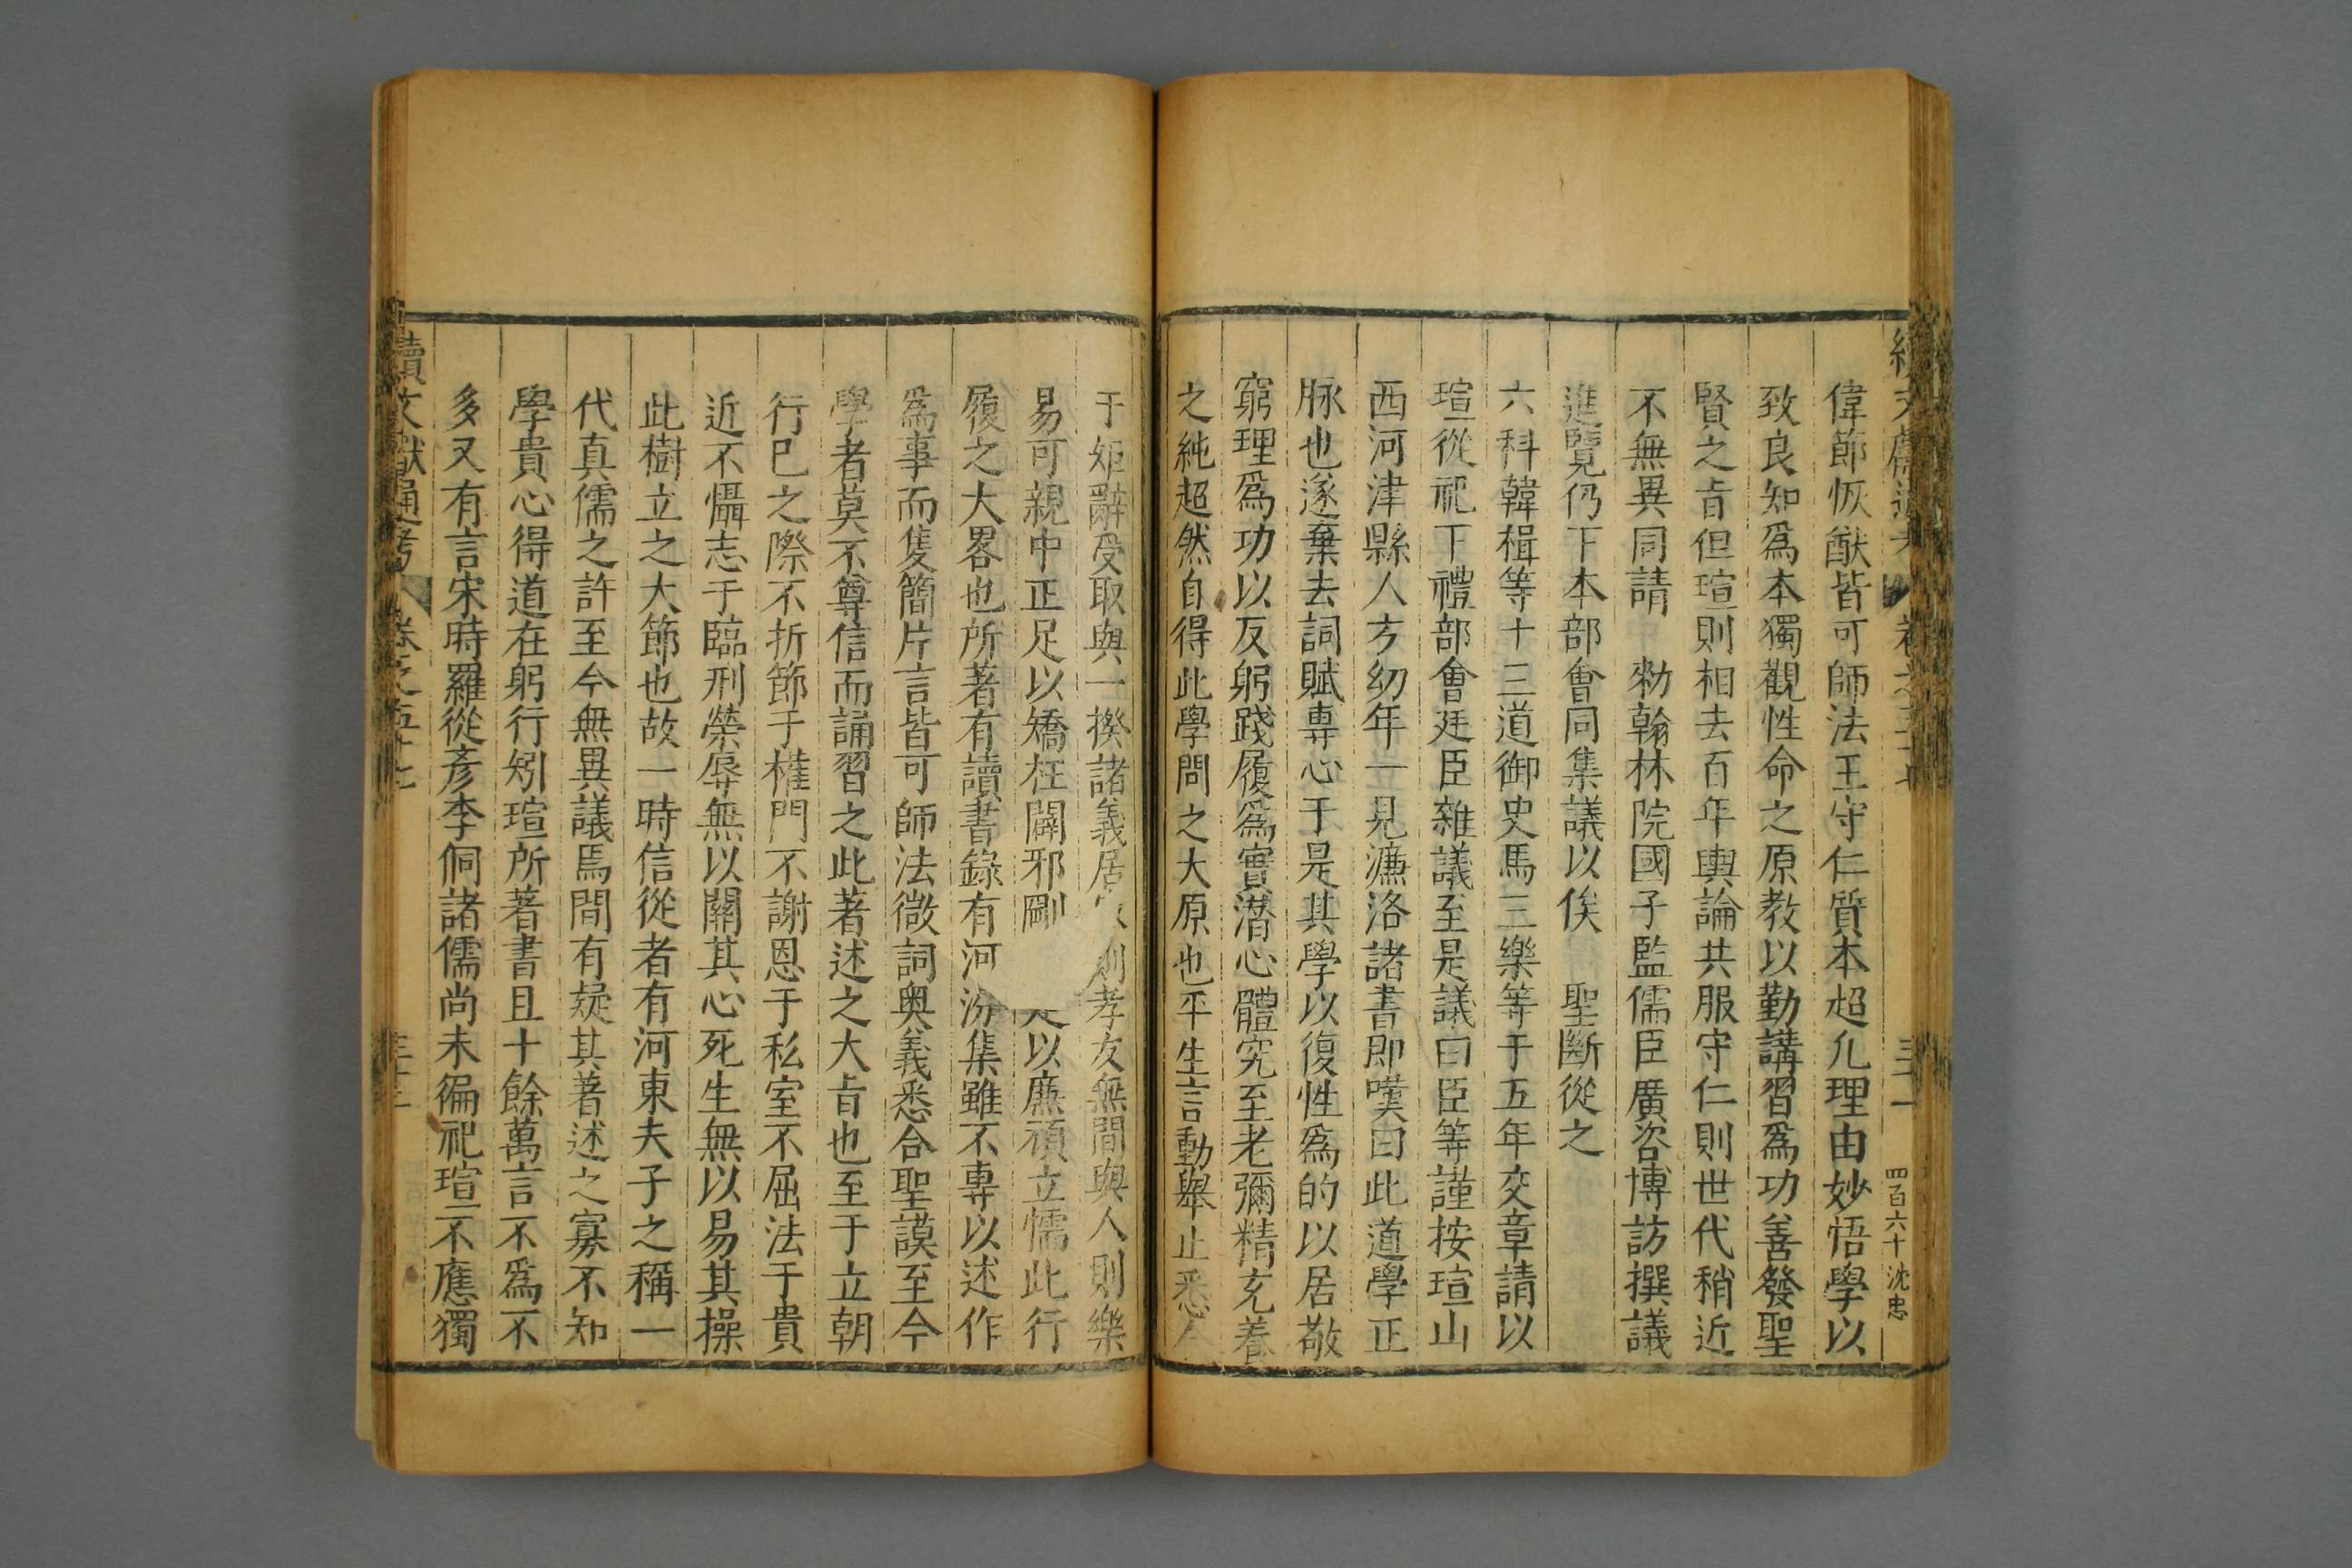 偉節恢猷皆可師法王守仁質本超凢理由妙悟學以
致良知爲本獨觀性命之原教以勤講習爲功善發聖
賢之旨但瑄則相去百年輿論共服守仁則世代稍近
不無異同請 勑翰林院國子監儒臣廣咨博訪撰議
進覽仍下本部會同集議以俟 聖斷從之
六科韓楫等十三道御史馬三樂等于五年交章請以
瑄從祀下禮部會廷臣雜議至是議曰臣等謹按瑄山
西河津縣人方幼年一見濂洛諸書即嘆曰此道學正
脉也遂棄去詞賦專心于是其學以復性爲的以居敬
窮理爲功以反躬踐履爲實潛心體究至老彌精充養
之純超然自得此學問之大原也平生言動舉止悉
四百六十沈忠
于姬辭受取與一揆諸義居 則孝友無間與人則樂
易可親中正足以矯枉闢邪剛 足以廉頑立懦此行
履之大畧也所著有讀書錄有河汾集雖不專以述作
爲事而隻簡片言皆可師法微詞奥義悉合聖謨至今
學者莫不尊信而誦習之此著述之大旨也至于立朝
行巳之際不折節于權門不謝恩于私室不屈法于貴
近不懾志于臨刑榮辱無以關其心死生無以易其操
此樹立之大節也故一時信從者有河東夫子之稱一
代真儒之許至今無異議焉間有疑其著述之寡不知
學貴心得道在躬行矧瑄所著書且十餘萬言不爲不
多又有言宋時羅從彥李侗諸儒尚未徧祀瑄不應獨
續文獻通考 卷之五十七 三十二